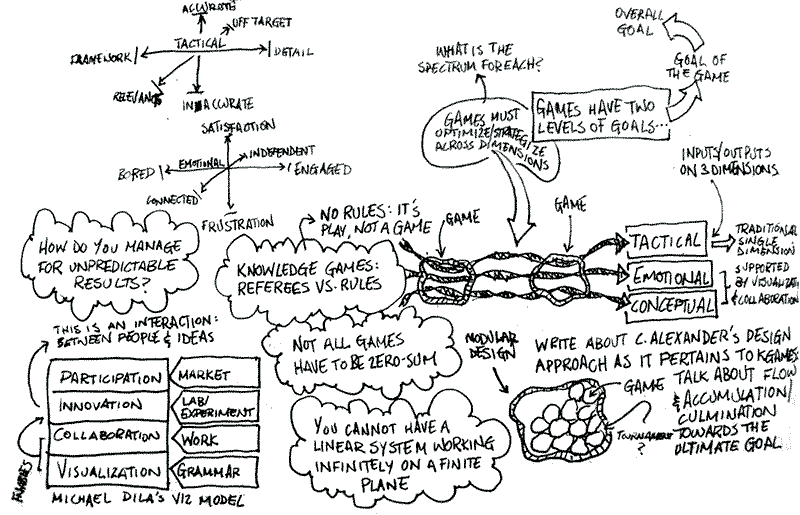 ACCURATE
OFF TARGET
TACTICAL
FRAMEWORK
DETAIL
RELEVANCE
INACCURATE
SATISFACTION
INDEPENDENT
EMOTIONAL
BORED
ENGAGED
CONNECTED
FRUSTRATION
WHAT IS THE
SPECTRUM FOR EACH?
OVERALL
GOAL
GOAL OF
THE GAME
GAMES MUST
OPTIMIZE/STRATEGIZE
ACROSS DIMENSIONS
GAMES HAVE TWO
LEVELS OF GOALS...
INPUTS/OUTPUTS
ON 3 DIMENSIONS
HOW DO YOU MANAGE
FOR UNPREDICTABLE
RESULTS?
NO RULES: IT'S
PLAY, NOT A GAME
KNOWLEDGE GAMES:
REFEREES VS. RULES
GAME
GAME
TACTICAL
EMOTIONAL
CONCEPTUAL
TRADITIONAL
SINGLE
DIMENSION
SUPPORTED
BY VISUALIZATI
& COLLABORATION
THIS IS AN INTERACTION:
BETWEEN PEOPLE & IDEAS
PARTICIPATION
MARKET
INNOVATION
LAB/
EXPERIMENT
COLLABORATION
WORK
VISUALIZATION
GRAMMAR
MICHAEL DILA'S VIZ MODEL
NOT ALL GAMES
HAVE TO BE ZERO-SUM
YOU CANNOT HAVE A
LINEAR SYSTEM WORKING
INFINITELY ON A FINITE
PLANE
MODULAR
DESIGN
WRITE ABOUT C. ALEXANDER'S DESIGN
APPROACH AS IT PERTAINS TO KGAMES
GAME
TOURNAMENT
?
TALK ABOUT FLOW
& ACCUMULATION/
CULMINATION
TOWARDS THE
ULTIMATE GOAL